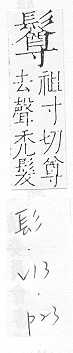 祖寸切尊
去聲禿髮
髟
.
v13
.
p23